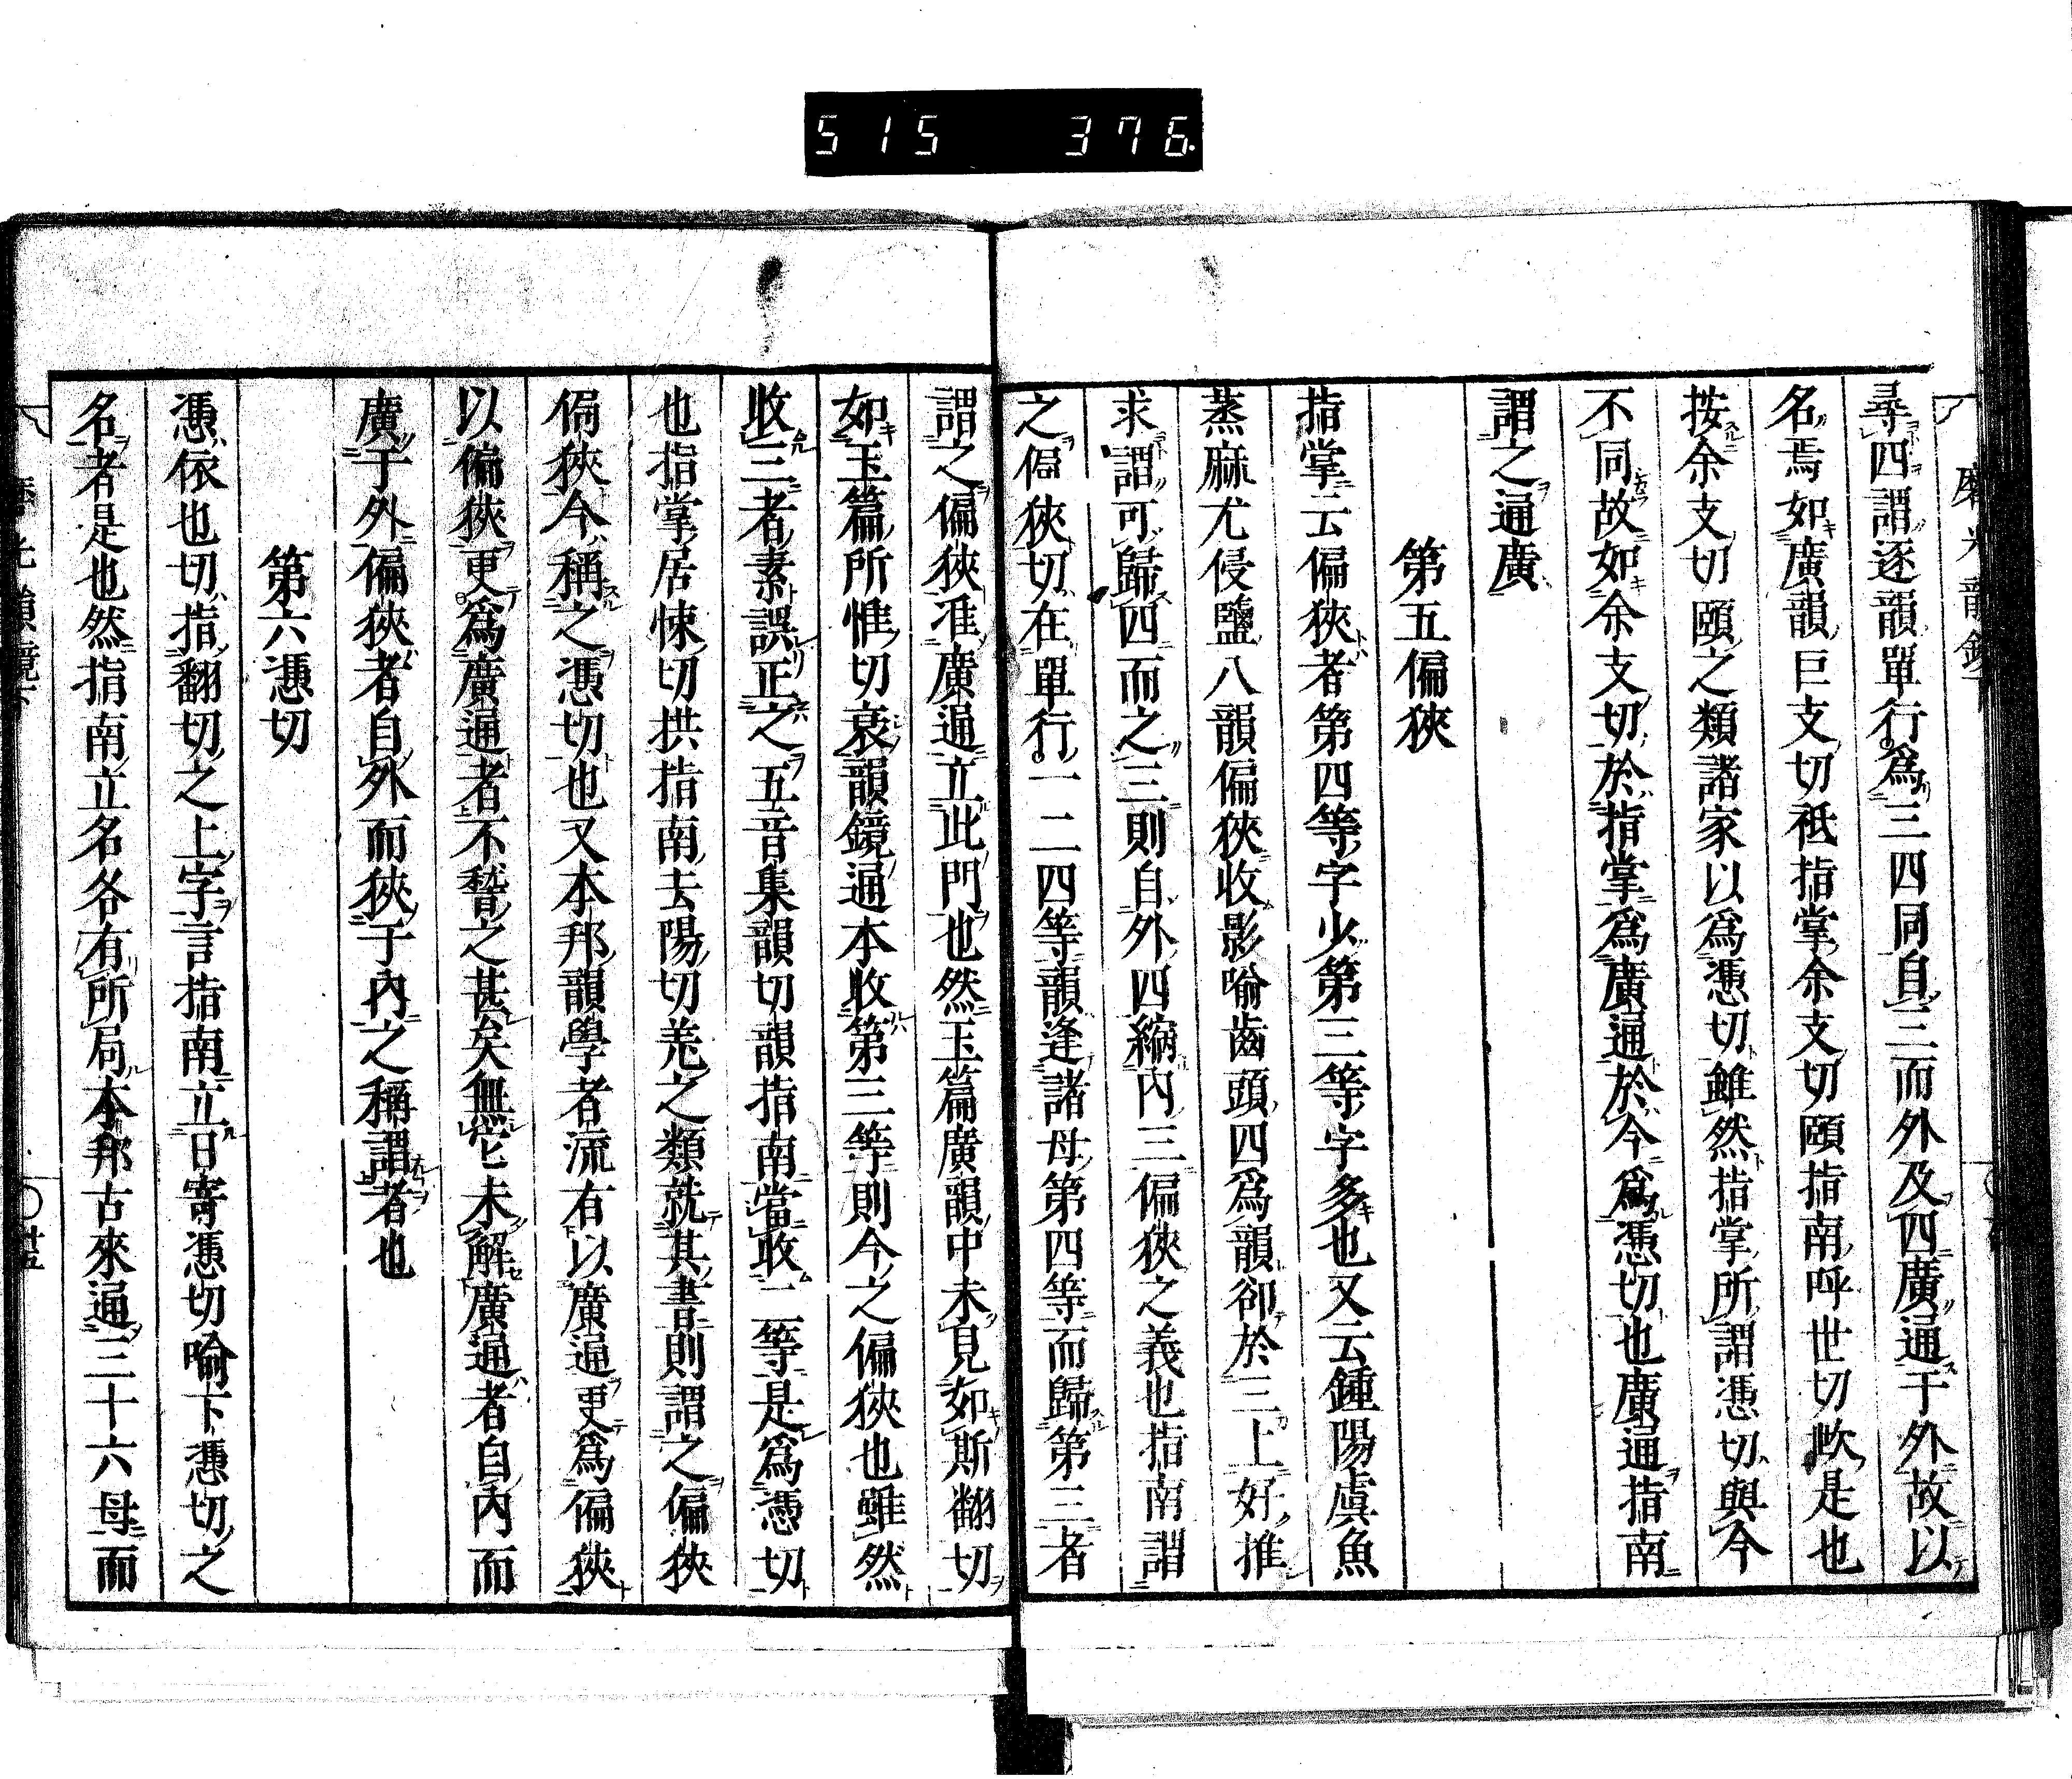 515 376
尋四謂逐韻單行爲三四同自三而外及四廣通于外故以
名焉如廣韻巨支切祗指掌余支切頤指南呼世切㰟是也
按余支切頤之類諸家以爲憑切雖然指掌所謂憑切與今
不同故如余支切於指掌爲廣通於今爲憑切也廣通指南
謂之通廣
第五偏狹
指掌云偏狹者第四等字少第三等字多也又云鍾陽虞魚
蒸麻尤侵鹽八韻偏狹收影喻齒頭四爲韻卻於三上好推
求謂可歸四而之三則自外四縮內三偏狹之義也指南謂
之偪狹切在單行一二四等韻逢諸母第四等而歸第三者
謂之偏狹准廣通立此門也然玉篇廣韻中未見如斯翻切
如玉篇所惟切衰韻鏡通本收第三等則今之偏狹也雖然
收三者素誤正之五音集韻切韻指南當收二等是爲憑切
也指掌居悚切拱指南去陽切羌之類就其書則謂之偏狹
偪狹今稱之憑切也又本邦韻學者流有以廣通更爲偏狹
以偏狹更爲廣通者不稽之甚矣無它未解廣通者自內而
廣于外偏狹者自外而狹于內之稱謂者也
第六憑切
憑依也切指翻切之上字言指南立日寄憑切喻下憑切之
名者是也然指南立名各有所局本邦古來通三十六母而